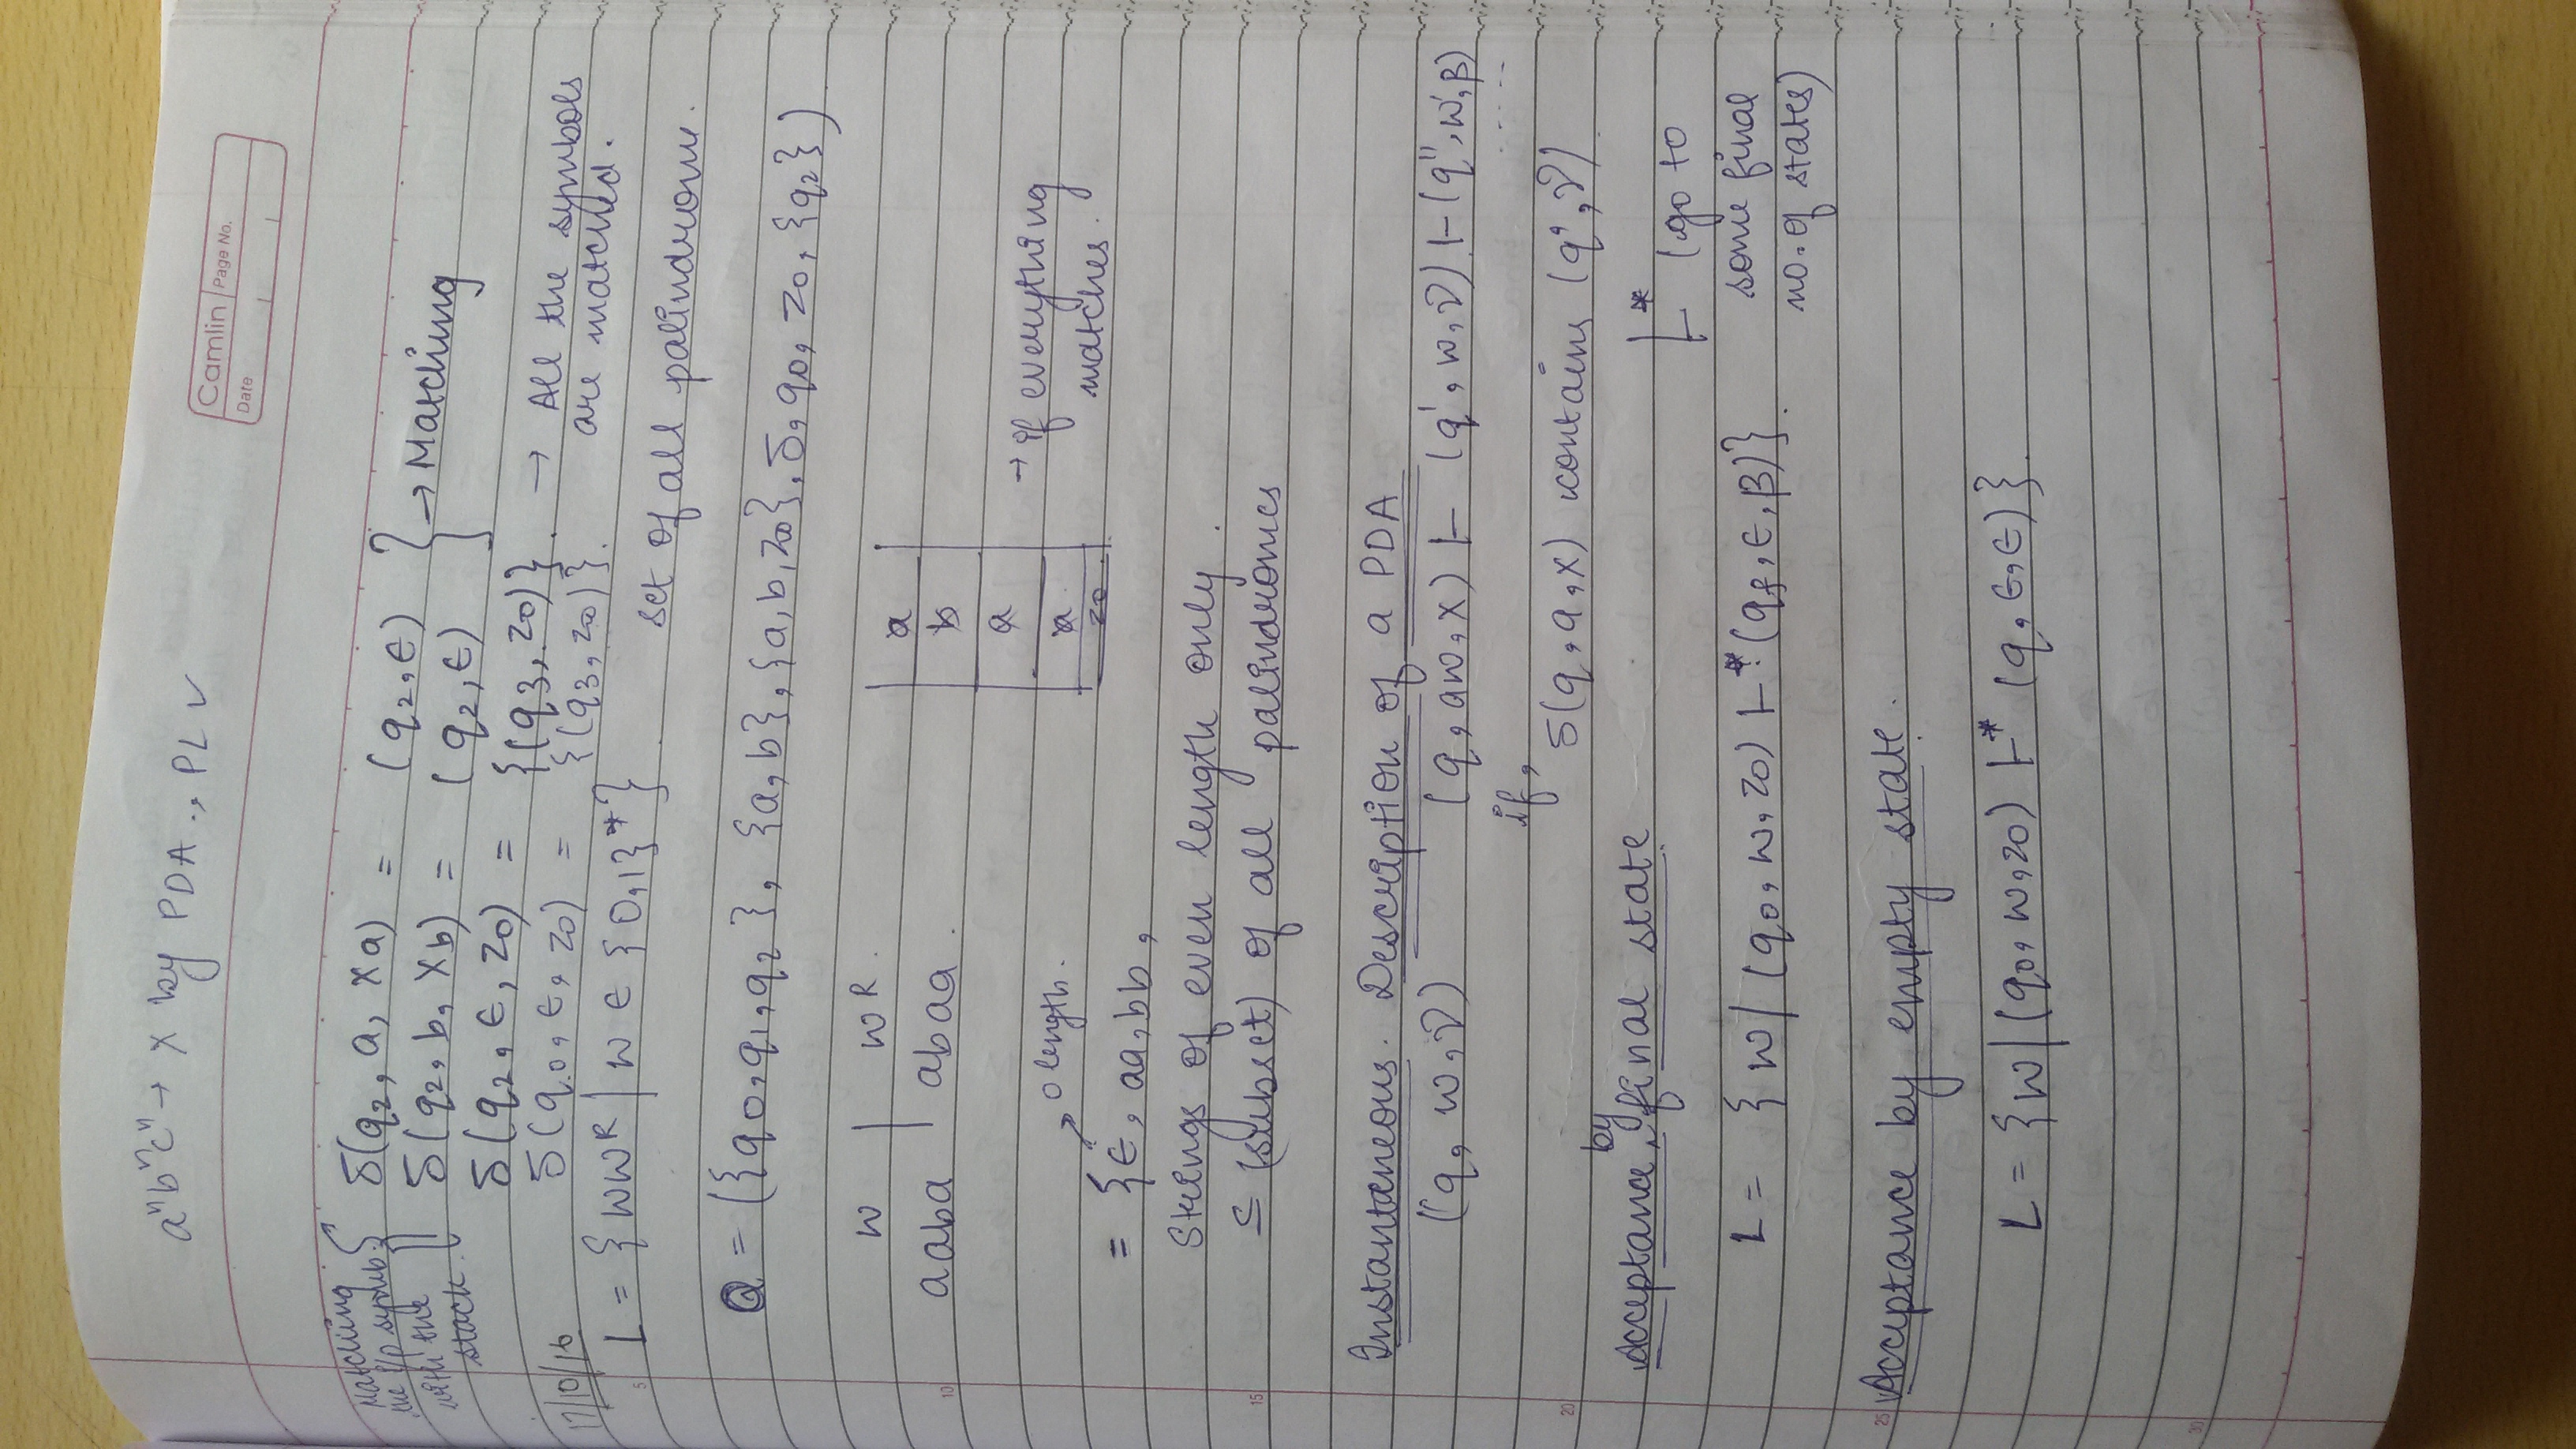 aⁿbⁿcⁿ → x by PDA ., PL ✓
Camlin Page No.
Date
Matching
the i/p symb.
with the
stack.
δ(q₂, a, xa) = (q₂, ε)
δ(q₂, b, xb) = (q₂, ε)
→ Matching
δ(q₂, ε, z₀) = {(q₃, z₀)}. → All the symbols
are matched.
δ(q₀, ε, z₀) = {(q₃, z₀)}.
17/10/16
5
L = {wwᴿ | w ∈ {0,1}*}. set of all palindrome.
Q = ({q₀, q₁, q₂}, {a, b}, {a, b, z₀}, δ, q₀, z₀, {q₂})
w | wᴿ.
10
aaba | abaa.
a
b
a
a
z₀
→ if everything
matches.
→ 0 length.
= {ε, aa, bb,
Strings of even length only.
15
⊆ (subset) of all palindromics
Instantaneous. Description of a PDA
(q, w, γ) (q, aw, x) ⊢ (q', w, γ) ⊢ (q'', w', β)
.....
if,
20
δ(q, a, x) contains (q', γ)
Acceptance by final state
⊢* (go to
some final
no. of states)
L = {w | (q₀, w, z₀) ⊢* (qf, ε, β)}.
25
Acceptance by empty state.
L = {w | (q₀, w, z₀) ⊢* (q, ε, ε)}.
30